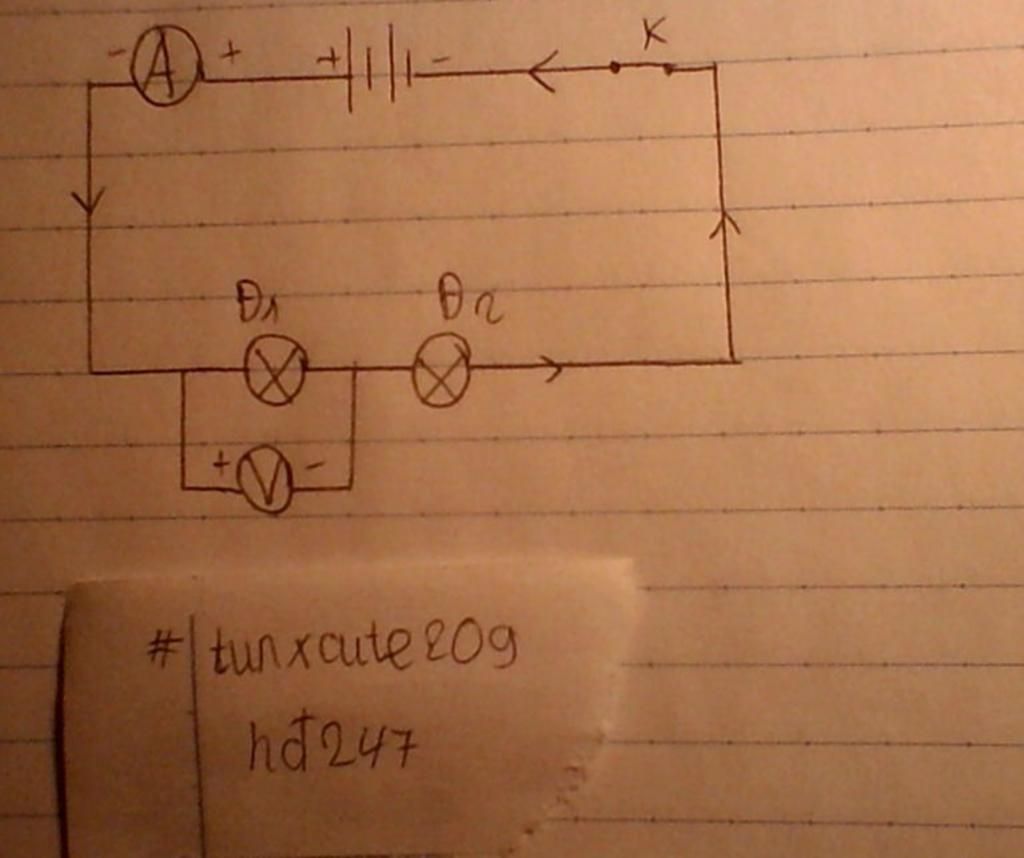 K
- A + + -
Đ1 Đ2
+ V -
# tunxcute209
hđ247